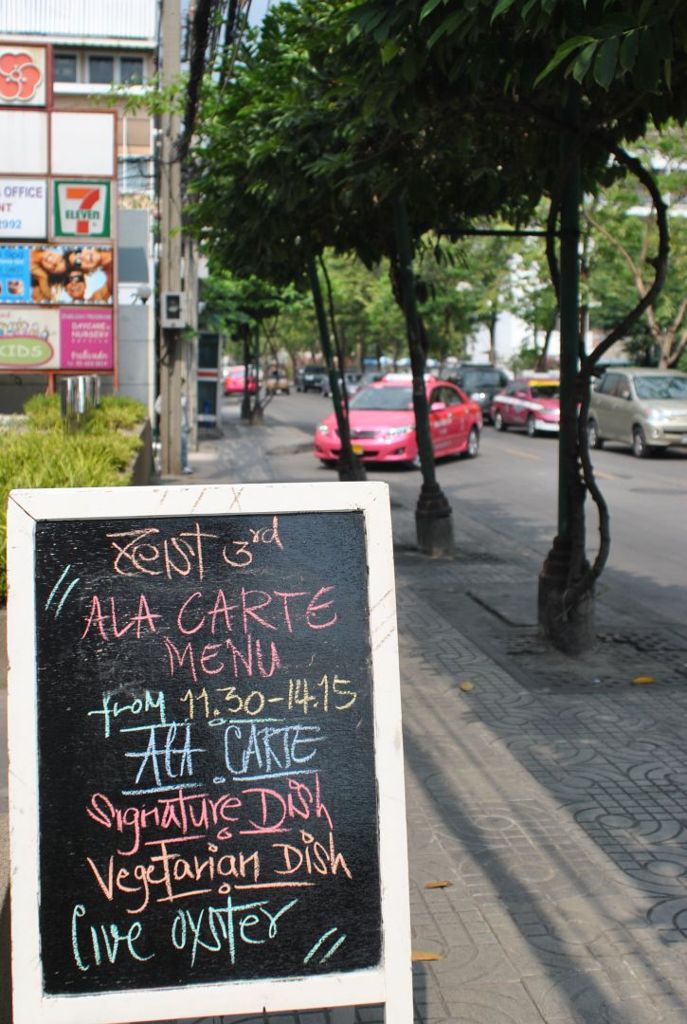 OFFICE
NT
2992
7
ELEVEn
KIDS
DAYCARE
NURSERY
Zeist 3rd
"ALA CARTE
MENU
from 11.30-14.15
ALA CARTE
Signature Dish
Vegetarian Dish
Live oyster"